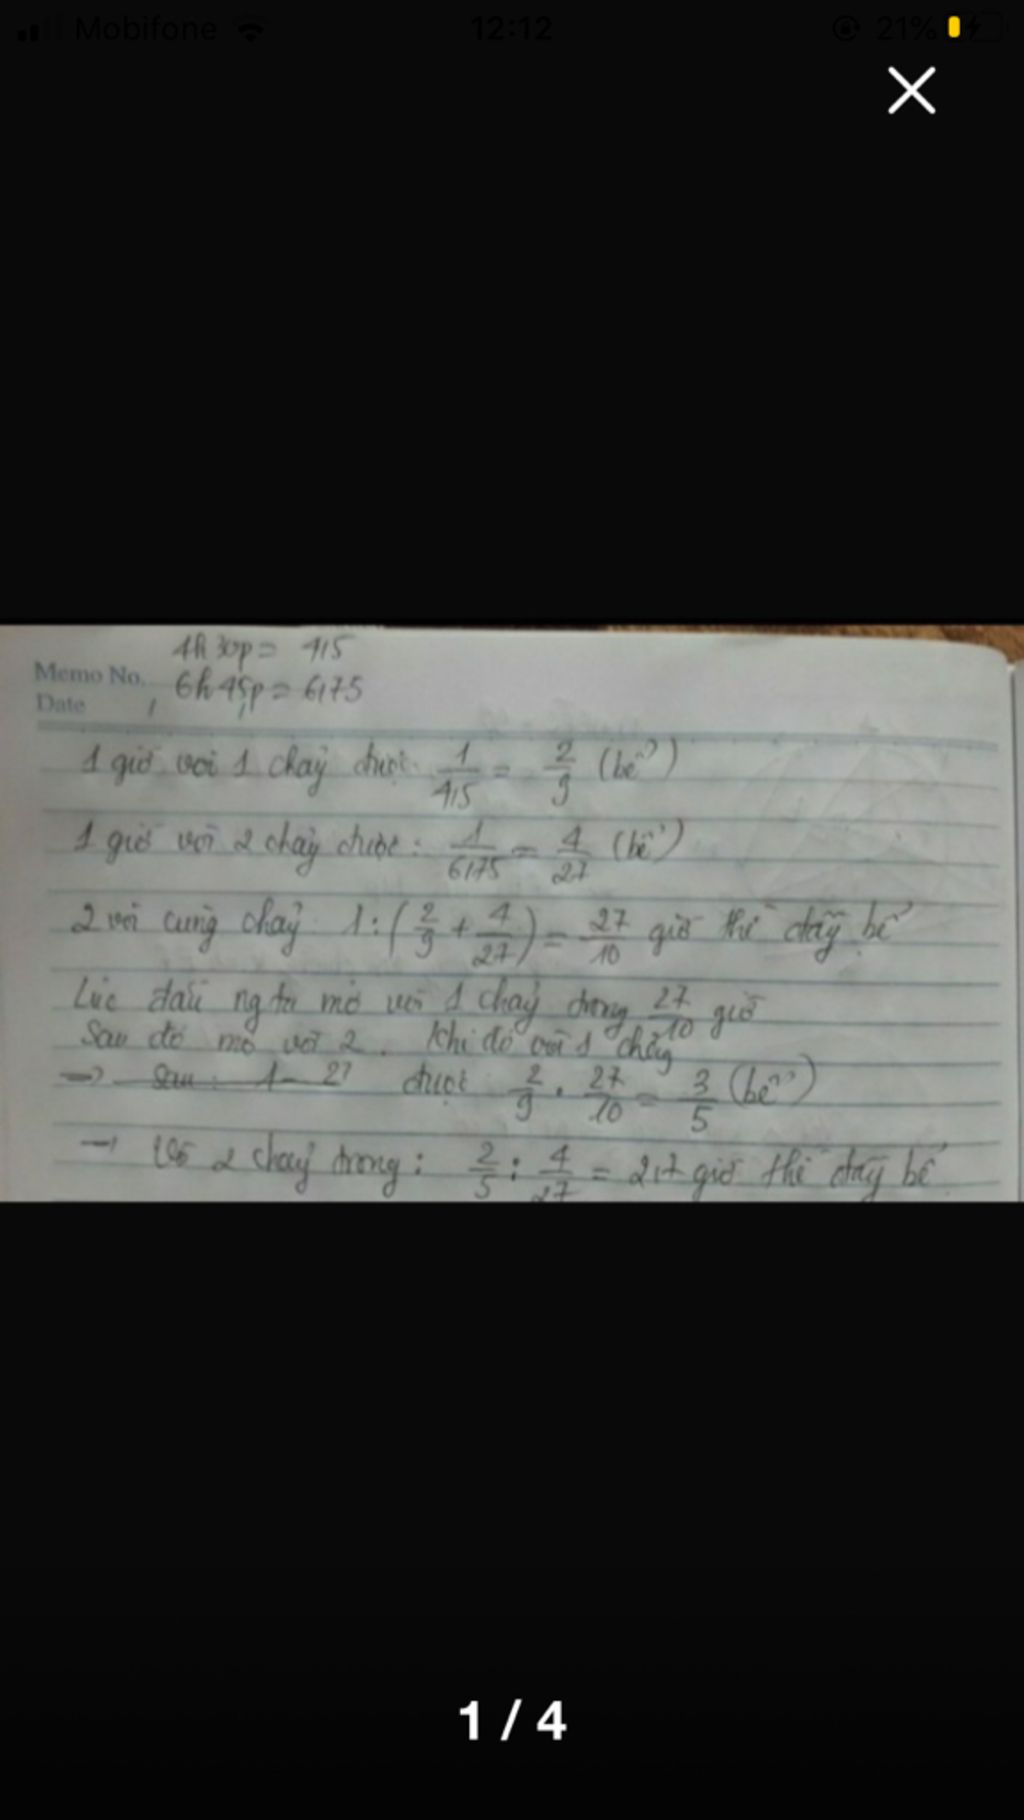 Mobifone 12:12 21%
4h 30p = 4,5
Memo No.
6h 45p = 6,75
Date
1 giờ vòi 1 chảy được: 1/4,5 = 2/9 (bể)
1 giờ vòi 2 chảy được: 1/6,75 = 4/27 (bể)
2 vòi cùng chảy 1:(2/9 + 4/27) = 27/10 giờ thì đầy bể
Lúc đầu ng ta mở vòi 1 chảy trong 27/10 giờ
Sau đó mở vòi 2. Khi đó vòi 1 chảy
→ được 2/9 . 27/10 = 3/5 (bể)
→ Vòi 2 chảy trong: 2/5 : 4/27 = 2,7 giờ thì đầy bể
1 / 4